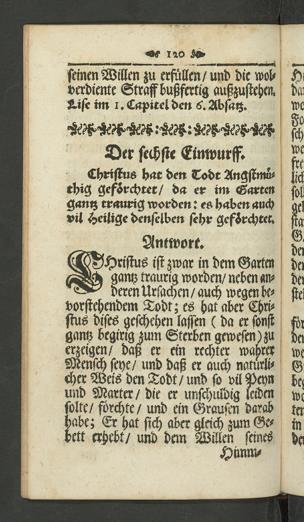 120
seinen Willen zu erfüllen / und die wol-
verdiente Straff bußfertig außzustehen.
Lise im 1. Capitel den 6. Absatz.
Der sechste Einwurff.
Christus hat den Todt Angstmü-
thig geförchtet / da er im Garten
gantz traurig worden: es haben auch
vil Heilige denselben sehr geförchtet.
Antwort.
CHristus ist zwar in dem Garten
gantz traurig worden / neben an-
deren Ursachen / auch wegen be-
vorstehendem Todt; es hat aber Chri-
stus dises geschehen lassen (da er sonst
gantz begirig zum Sterben gewesen) zu
erzeigen / daß er ein rechter wahrer
Mensch seye / und daß er auch natürli-
cher Weis den Todt / und so vil Peyn
und Marter / die er unschuldig leiden
solte / förchte / und ein Grausen darab
habe; Er hat sich aber gleich zum Ge-
bett erhebt / und dem Willen seines
Himm-